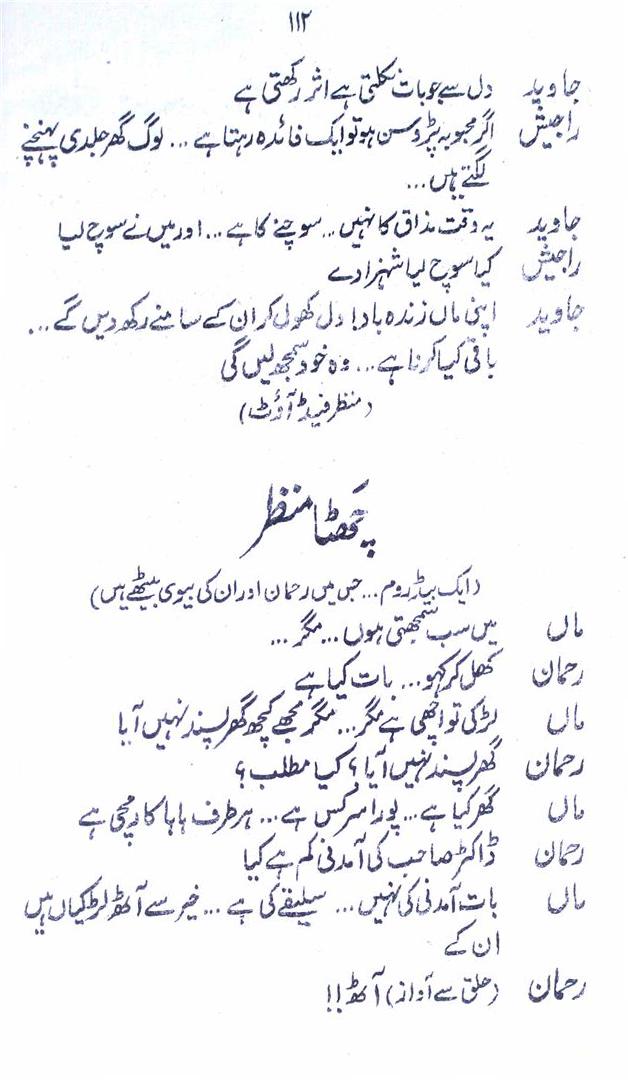 ۱۱۲
جاوید دل سے جو بات نکلتی ہے اثر رکھتی ہے
راجیش اگر محبوبہ پڑوسن ہو تو ایک فائدہ رہتا ہے ... لوگ گھر جلدی پہنچنے
لگتے ہیں ...
جاوید یہ وقت مذاق کا نہیں ... سوچنے کا ہے ... اور میں نے سوچ لیا
راجیش کیا سوچ لیا شہزادے
جاوید اپنی ماں زندہ باد! دل کھول کر ان کے سامنے رکھ دیں گے ...
باقی کیا کرنا ہے ... وہ خود سمجھ لیں گی
(منظر فیڈ آؤٹ)
چھٹا منظر
(ایک بیڈ روم ... جس میں رحمان اور ان کی بیوی بیٹھے ہیں)
ماں میں سب سمجھتی ہوں ... مگر ...
رحمان کھل کر کہو ... بات کیا ہے
ماں لڑکی تو اچھی ہے مگر ... مگر مجھے کچھ گھر پسند نہیں آیا
رحمان گھر پسند نہیں آیا؟ کیا مطلب؟
ماں گھر کیا ہے ... پورا سرکس ہے ... ہر طرف ہاہا کار مچی ہے
رحمان ڈاکٹر صاحب کی آمدنی کم ہے کیا
ماں بات آمدنی کی نہیں ... سلیقے کی ہے ... خیر سے آٹھ لڑکیاں ہیں
ان کے
رحمان (حلق سے آواز) آٹھ!!